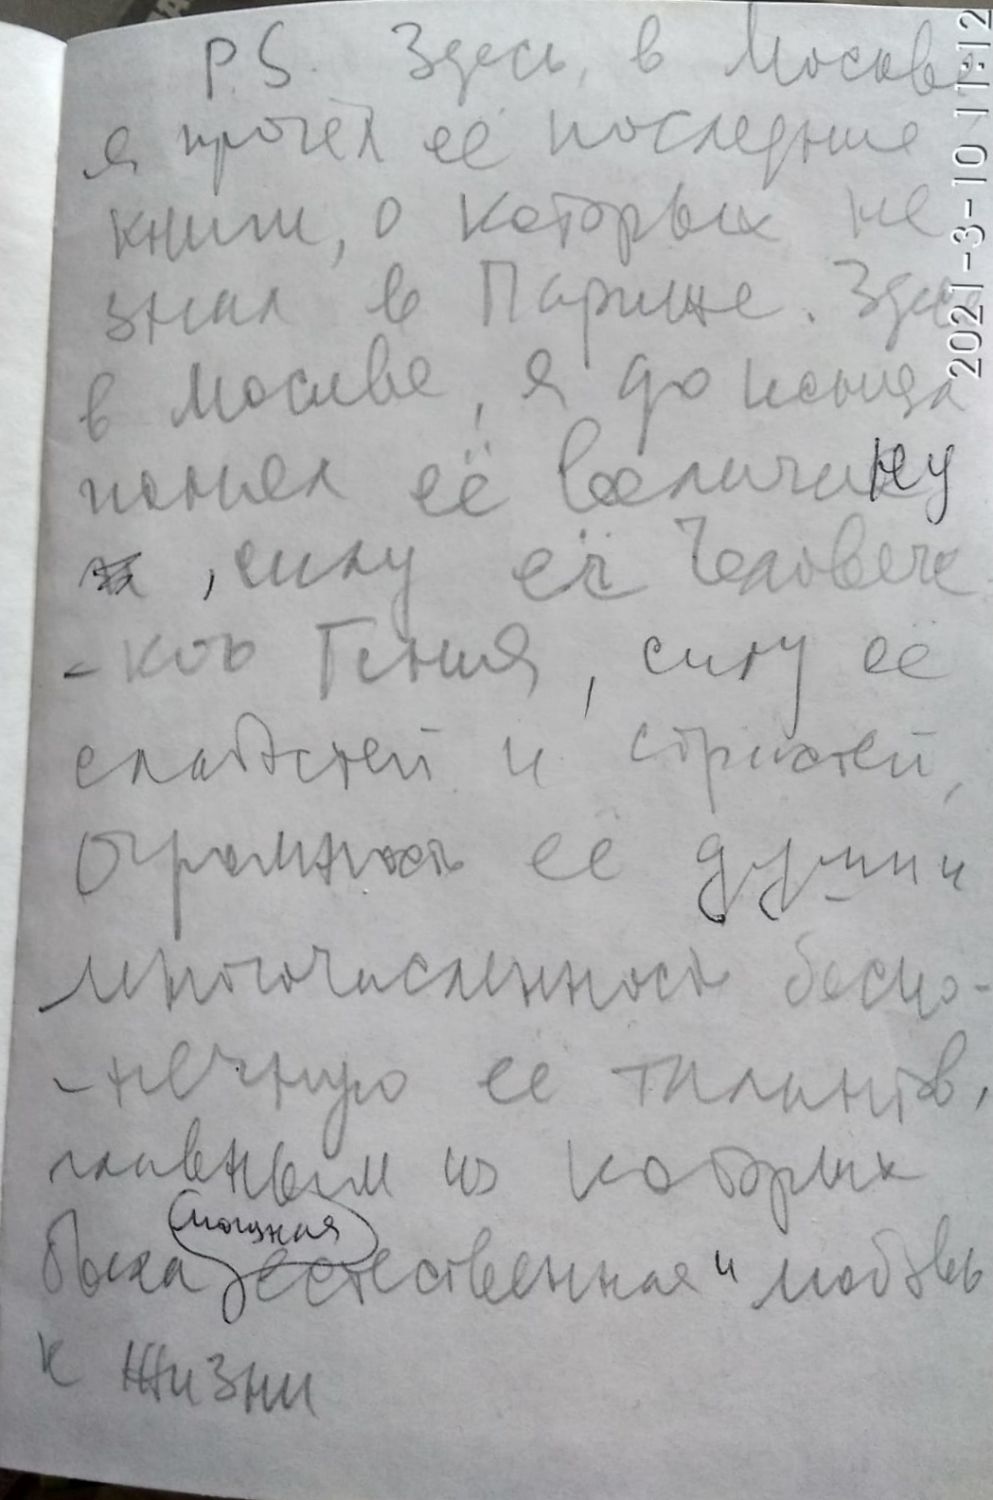 P.S. Здесь, в Москве
я прочёл её последние
книги, о которых не
знал в Париже. Здесь
в Москве, я до конца
понял её величину
, силу её Человечес
-кого Гения, силу её
слабостей и страстей,
огромность её души и
многочисленность беско-
-нечную её талантов,
главным из которых
мощная
была естественная и любовь
к жизни
2021-3-10 11:12